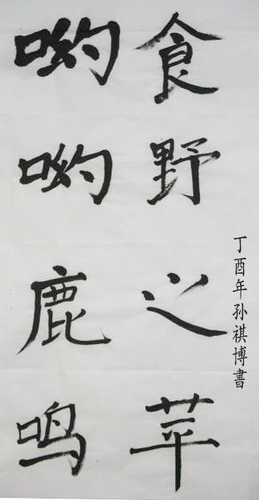 呦呦鹿鸣
食野之苹
丁酉年孙祺博書